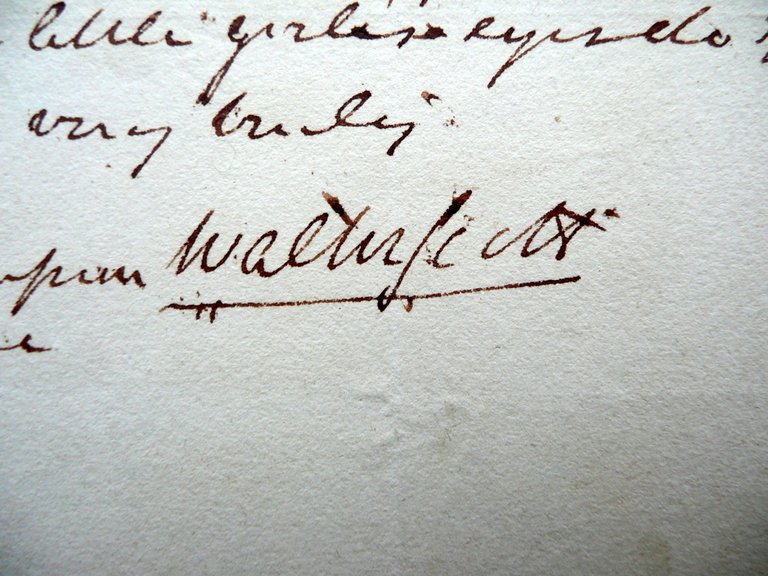 little girls eyes do
very truly
Walter Scott